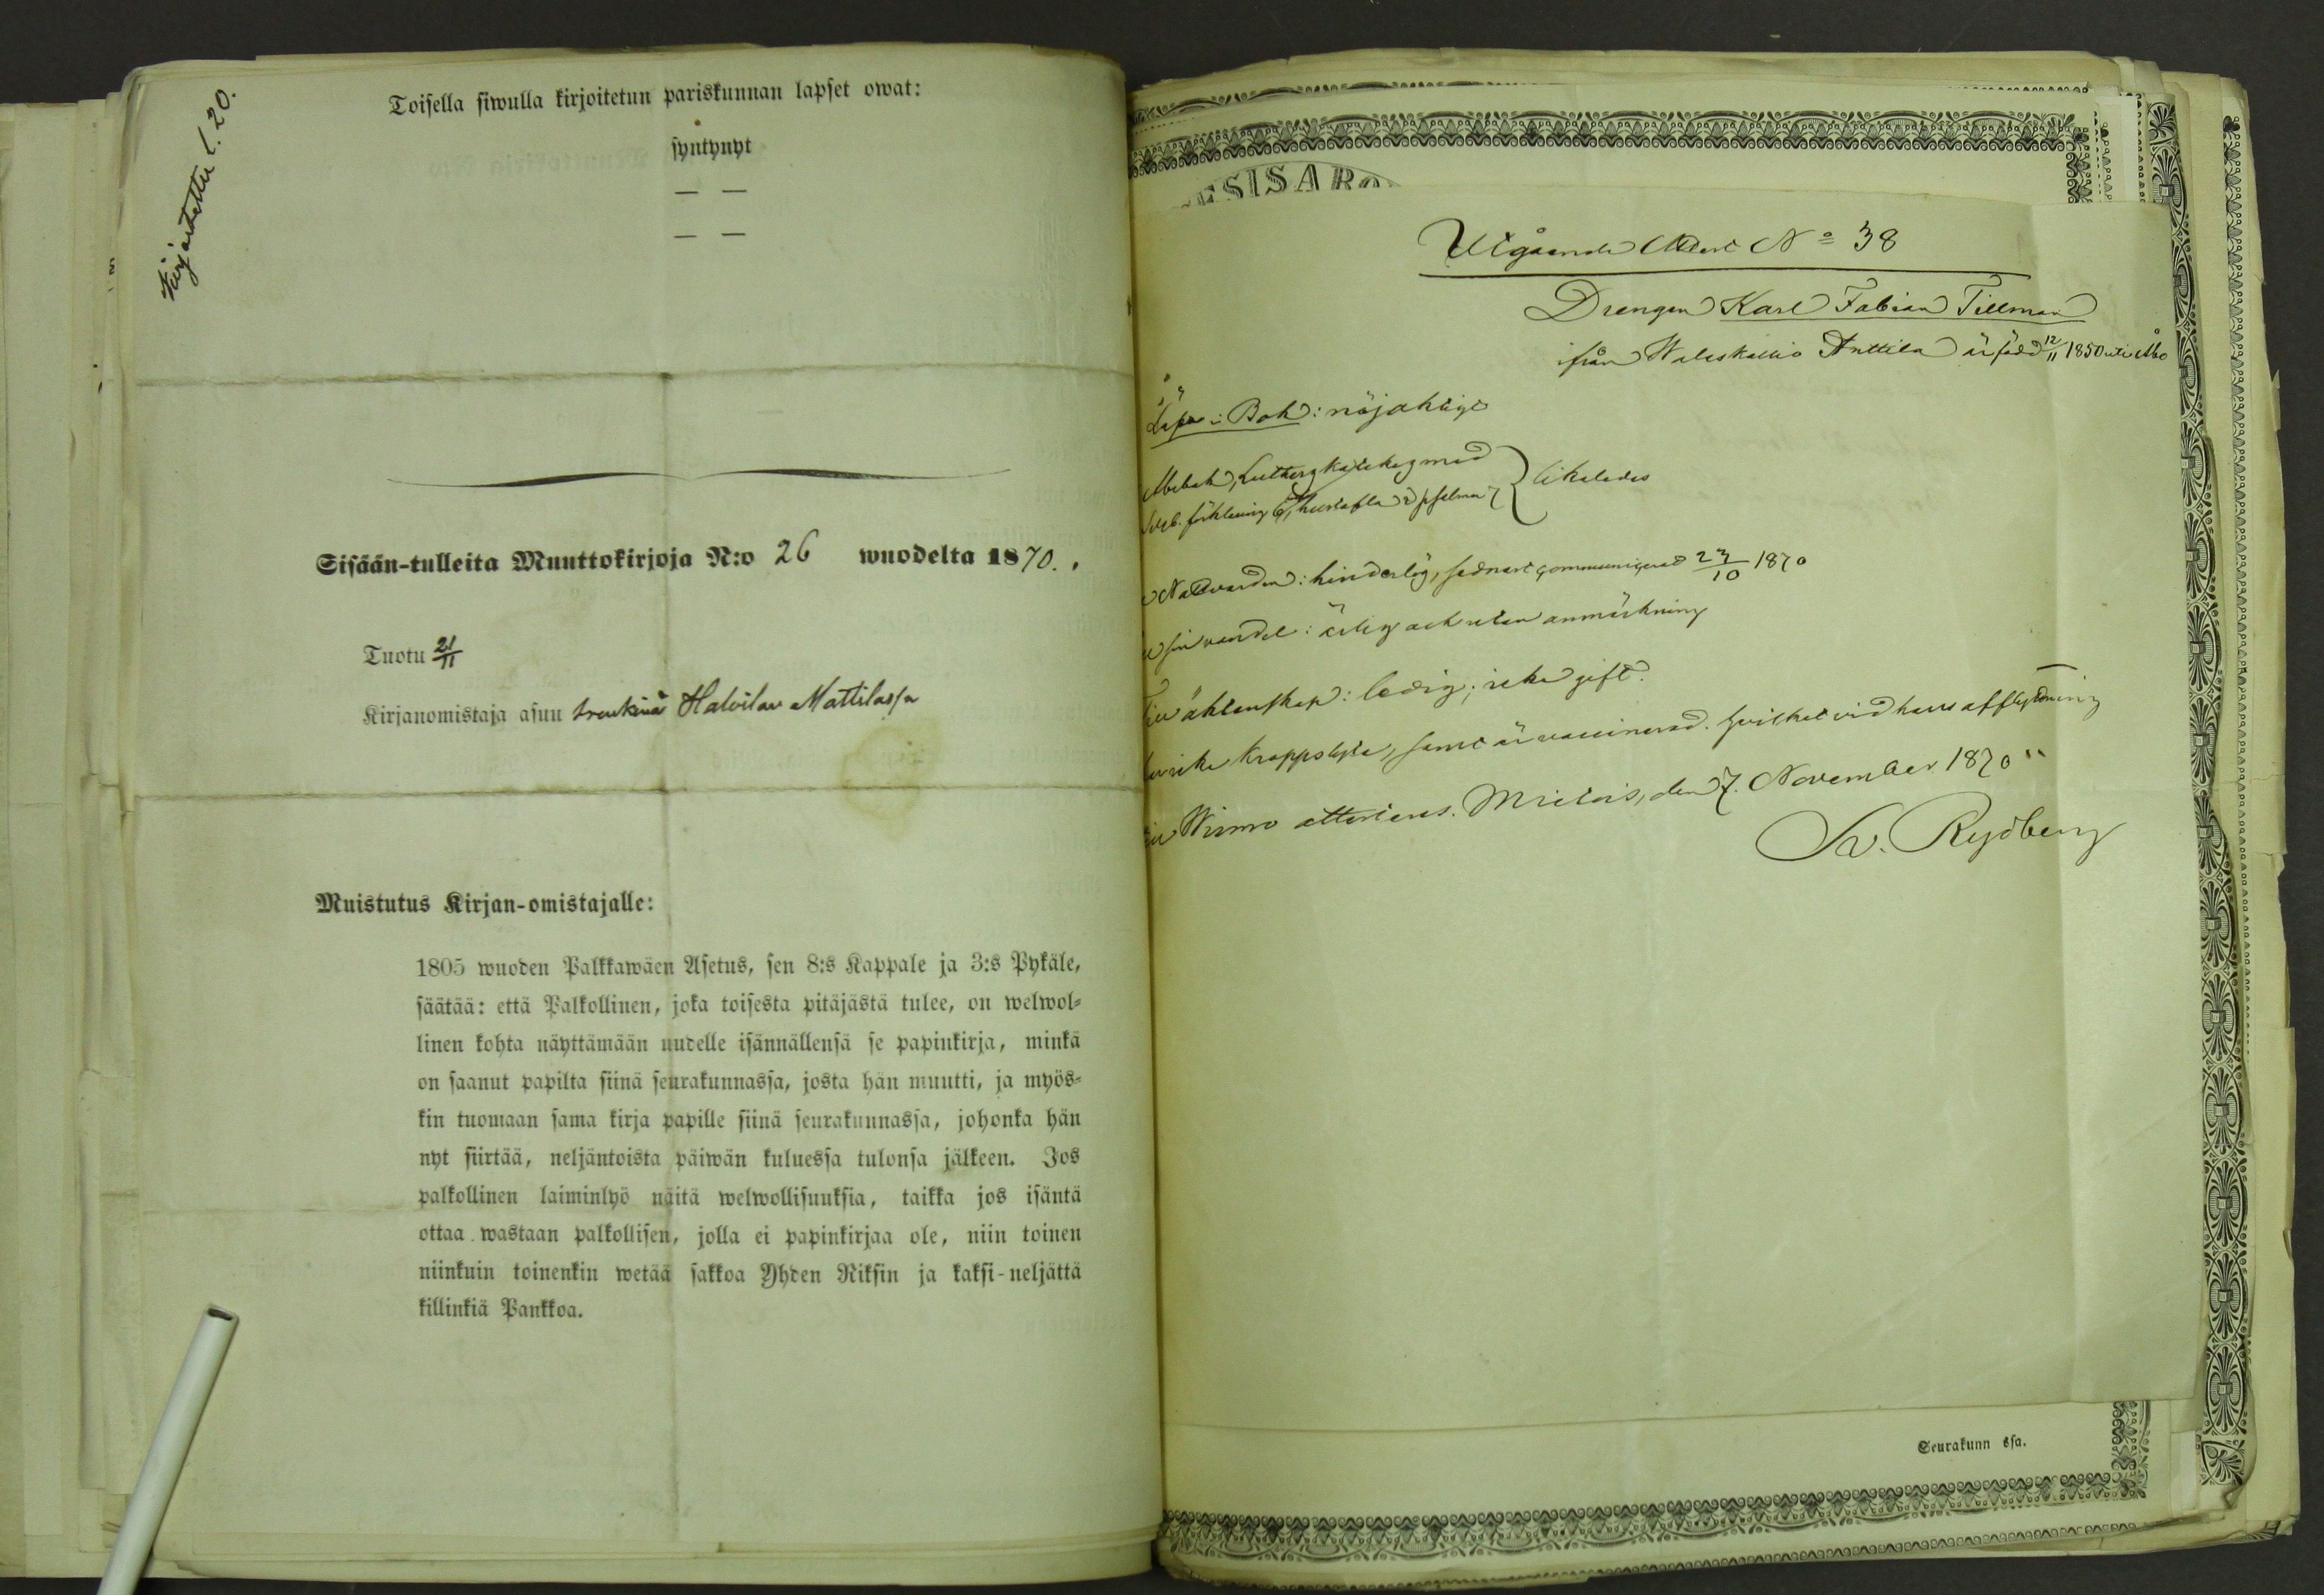 Kirjoitettu l. 20.
Toisella siwulla kirjoitetun pariskunnan lapset owat:
syntynyt
— —
— —
Sisään-tulleita Muuttokirjoja N:o 26 wuodelta 1870.
Tuotu 21/11
Kirjanomistaja asuu trenkinä Halvilan Mattilassa
Muistutus Kirjan-omistajalle:
1805 wuoden Palkkawäen Asetus, sen 8:s Kappale ja 3:s Pykäle,
säätää: että Palkollinen, joka toisesta pitäjästä tulee, on welwol-
linen kohta näyttämään uudelle isännällensä se papinkirja, minkä
on saanut papilta siinä seurakunnassa, josta hän muutti, ja myös-
kin tuomaan sama kirja papille siinä seurakunnassa, johonka hän
nyt siirtää, neljäntoista päiwän kuluessa tulonsa jälkeen. Jos
palkollinen laiminlyö näitä welwollisuuksia, taikka jos isäntä
ottaa wastaan palkollisen, jolla ei papinkirjaa ole, niin toinen
niinkuin toinenkin wetää sakkoa Yhden Riksin ja kaksi-neljättä
killinkiä Pankkoa.
ESISARO
Utgående Attest No 38
Drengen Karl Fabian Tillman
ifrån Walaskallio Anttila är född 12/11 1850 uti Åbo
Läser i Bok: nöjaktigt
Abcbok, Luthers kateches med
förklaring, hustafla & psalmer } likaledes
Nattvarden: hinderlös, sednast communicerad 23/10 1870
sin vandel: ärlig och utan anmärkning
äktenskap: ledig; icke gift.
icke kroppslyte, samt är vaccinerad. Hvilket vid hans afflyttning
Wirmo attesteras. Mietois, den 7. November 1870
Sv. Rydberg
Seurakunn ssa.